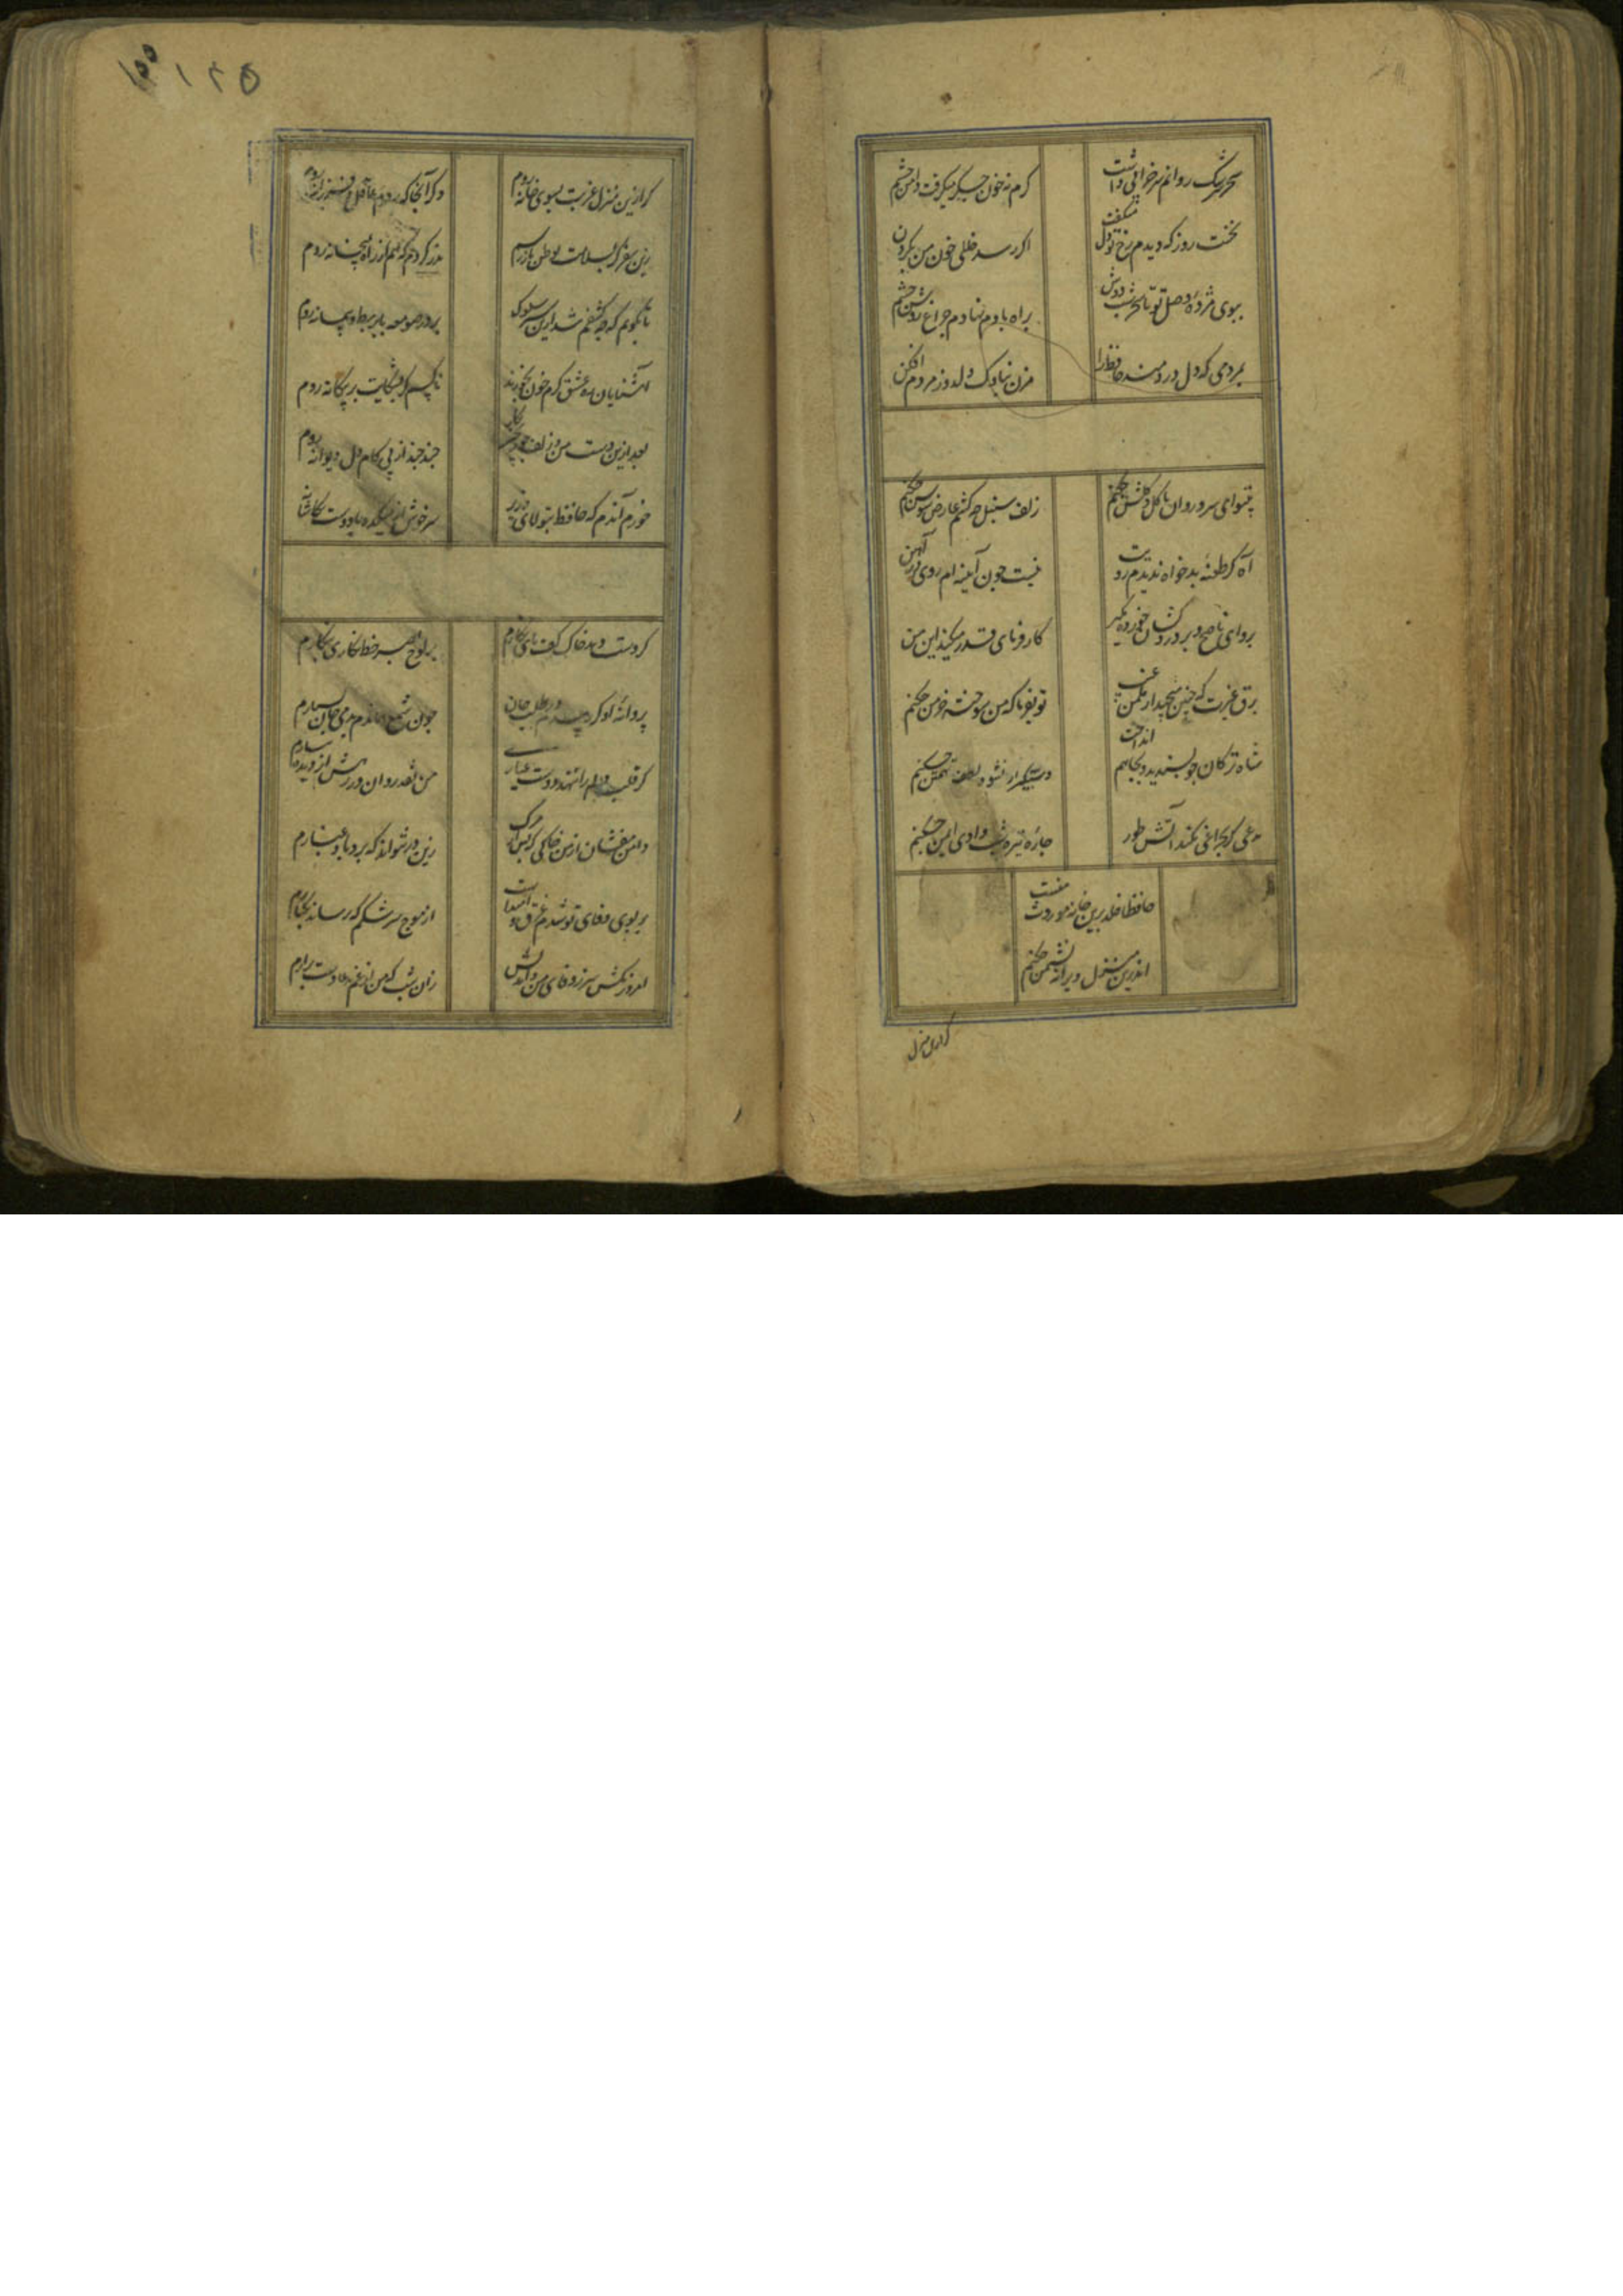 سحر سرشک روانم سر خرابی داشت
کرم نه خون جکر میکرفت دامن چشم
نخست روز که دیدم رخ تو دل میکفت
اکر رسد خللی خون من بکردن چشم
ببوی مژدهٔ وصل تو تا سحر شب دوش
براه باد نهادم چراغ روشن چشم
بمردمی که دل دردمند حافظ را
مزن بناوک دلدوز مردم افکن چشم
بیتو ای سرو روان با کل و کلشن چکنم
زلف سنبل چه کشم عارض سوسن چکنم
آه کز طعنهٔ بدخواه ندیدم رویت
نیست چون آینه ام روی ز آهن چکنم
برو ای ناصح و بر دردکشان خرده مکیر
کارفرمای قدر میکند این من چکنم
برق غیرت که چنین میجهد از مکمن غیب
تو بفرما که من سوخته خرمن چکنم
شاه ترکان چو پسندید و بچاهم انداخت
دستکیر ار نشود لطف تهمتن چکنم
مددی کر بچراغی نکند آتش طور
چارهٔ تیره شب وادی ایمن چکنم
حافظا خلد برین خانه موروث منست
اندرین منزل ویرانه نشیمن چکنم
کر ازین منزل
۱۲۵
کر ازین منزل غربت بسوی خانه روم
دکر آنجا که روم عاقل و فرزانه روم
زین سفر کر بسلامت بوطن باز رسم
نذر کردم که هم از راه بمیخانه روم
تا بکویم که چه کشفم شد ازین سیر و سلوک
بر در صومعه با بربط و پیمانه روم
آشنایان ره عشق کرم خون بخورند
ناکسم کر بشکایت بر بیکانه روم
بعد ازین دست من و زلف چو زنجیر نکار
چند چند از پی کام دل دیوانه روم
خرم آندم که حافظ بتولای وزیر
سرخوش از میکده با دوست بکاشانه
کر دست دهد خاک کف پای نکارم
بر لوح بصر خط غباری بنکارم
پروانهٔ او کر رسدم در طلب جان
چون شمع هماندم بدمی جان بسپارم
کر قلب دلم را ننهد دوست عیاری
من نقد روان در رهش از دیده شمارم
دامن مفشان از من خاکی که پس از مرک
زین در نتواند که برد باد غبارم
بر بوی وفای تو شدم غرق و امیدست
از موج سرشکم که رساند بکنارم
امروز مکش سر ز وفای من و اندیش
زان شب که من از غم بدعا دست برآرم